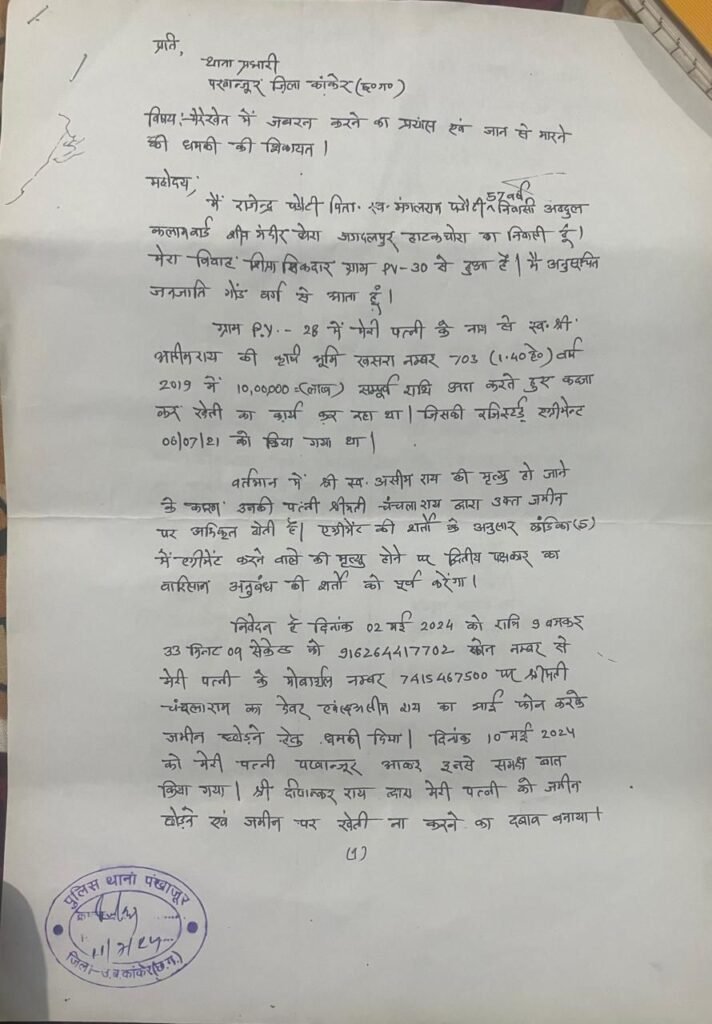 प्रति,
थाना प्रभारी
पखान्जूर जिला कांकेर (छ०ग०)
विषय:- मेरे खेत में जबरन करने का प्रयास एवं जान से मारने
की धमकी की शिकायत।
महोदय,
57 वर्ष
मैं राजेन्द्र पिता- स्व. मंगलराम निवासी अब्दुल
कलाम वार्ड मंदिर जगदलपुर हाटकचोरा का निवासी हूँ।
मेरा विवाह सिकदार ग्राम PV-30 से हुआ है। मैं अनुसूचित
जनजाति गोंड वर्ग से आता हूँ।
ग्राम P.V.- 28 में मेरी पत्नी के नाम से स्व. श्री
असीम राय की कृषि भूमि खसरा नम्बर 703 (1.40 हे०) वर्ष
2019 में 10,00,000=(लाख) सम्पूर्ण राशि अदा करते हुए कब्जा
कर खेती का कार्य कर रहा था। जिसकी रजिस्टर्ड एग्रीमेन्ट
06/07/21 को किया गया था।
वर्तमान में श्री स्व. असीम राय की मृत्यु हो जाने
के कारण उनकी पत्नी श्रीमती चंचला राय द्वारा उक्त जमीन
पर अधिकृत होती है। एग्रीमेंट की शर्तो के अनुसार कंडिका (5)
में एग्रीमेंट करने वाले की मृत्यु होने पर द्वितीय पक्षकार का
वारिसान अनुबंध की शर्तो को पूर्ण करेंगा।
निवेदन है दिनांक 02 मई 2024 को रात्रि 9 बजकर
33 मिनट 09 सेकेण्ड को 916264417702 फोन नम्बर से
मेरी पत्नी के मोबाईल नम्बर 7415467500 पर श्रीमती
चंचला राम का देवर असीम राय का भाई फोन करके
जमीन छोड़ने हेतु धमकी दिया। दिनांक 10 मई 2024
को मेरी पत्नी पखान्जूर आकर इनसे समक्ष बात
किया गया। श्री दीपान्कर राय द्वारा मेरी पत्नी को जमीन
छोड़ने एवं जमीन पर खेती ना करने का दबाव बनाया।
(1)
पुलिस थाना पंखाजूर
जिला-उ.ब.कांकेर(छ.ग.)